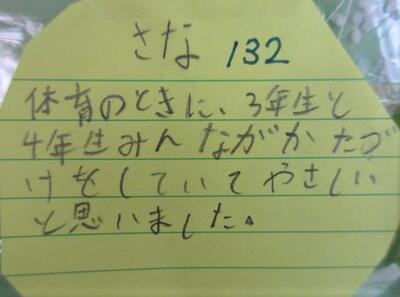 さな 132
体育のときに、3年生と
4年生みんながかたづ
けをしていてやさしい
と思いました。